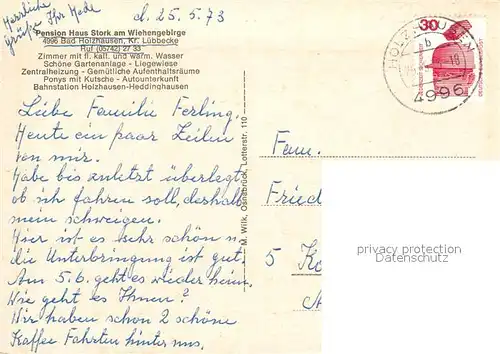 Herzliche
Grüße Ihr Hede
d. 25.5.73
Pension Haus Stork am Wiehengebirge
4996 Bad Holzhausen, Kr. Lübbecke
Ruf (05742) 27 33
Zimmer mit fl. kalt. und warm. Wasser
Schöne Gartenanlage - Liegewiese
Zentralheizung - Gemütliche Aufenthaltsräume
Ponys mit Kutsche - Autounterkunft
Bahnstation Holzhausen-Heddinghausen
Liebe Familie Ferling.
Heute ein paar Zeilen
von mir.
Habe bis zuletzt überlegt
ob ich fahren soll, deshalb
mein schweigen.
Hier ist es sehr schön u
die Unterbringung ist gut.
Am 5.6. geht es wieder heim.
Wie geht es Ihnen?
Wir haben schon 2 schöne
Kaffee Fahrten hinter uns.
M. Wilk, Osnabrück, Lotterstr. 110
30
HOLZHAUSEN
b
4996
Fam.
Fried
5 Ko
privacy protection
Datenschutz